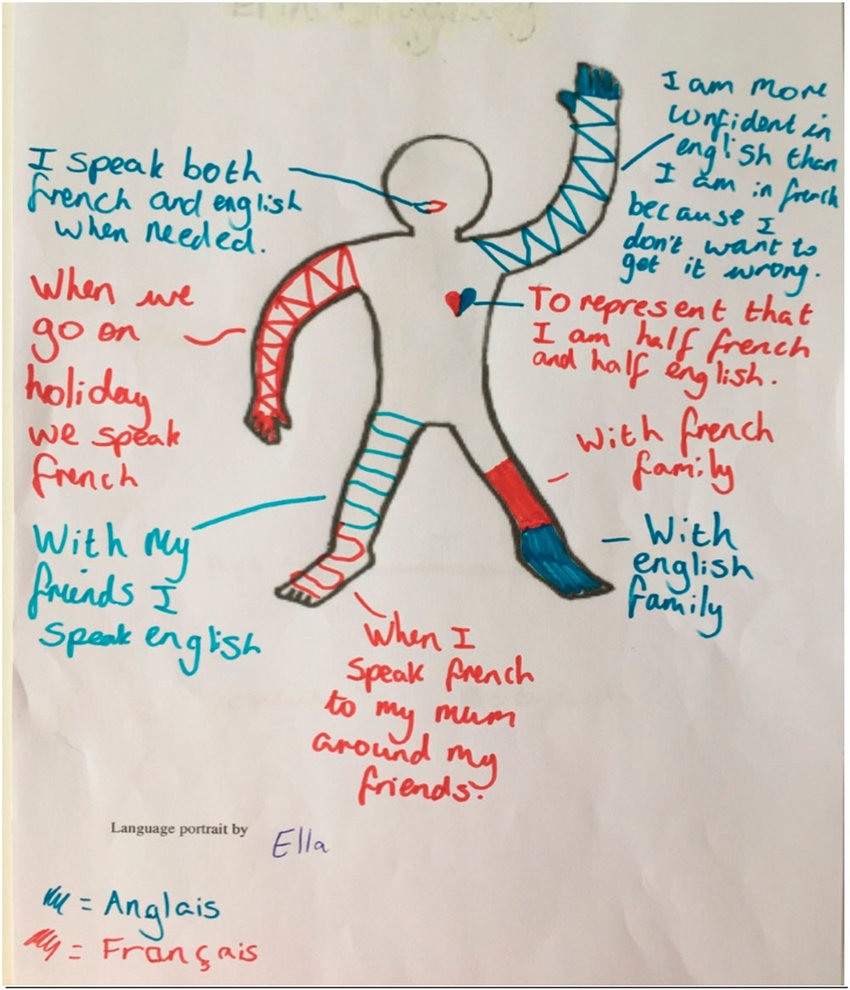 I speak both
french and english
when needed.
I am more
confident in
english than
I am in french
because I
don't want to
get it wrong.
When we
go on
holiday
we speak
french
To represent that
I am half french
and half english.
With french
family
With
english
family
With My
friends I
speak english
When I
speak french
to my mum
around my
friends.
Language portrait by
Ella
= Anglais
= Français